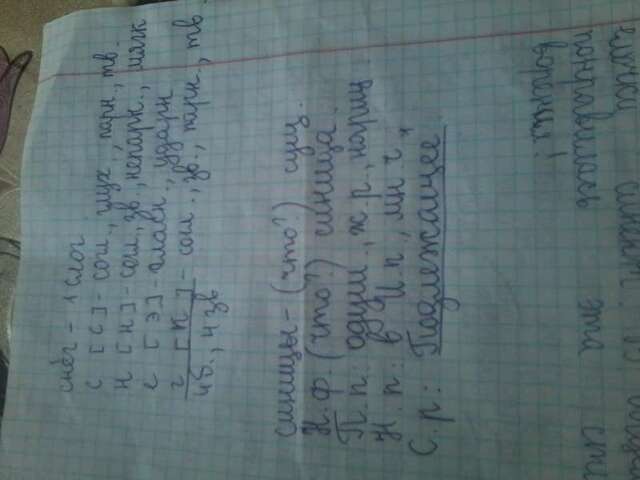 снег - 1 слог
с [с] - согл., глух., парн., тв.
н [н] - согл., зв., непарн., мягк
е [э] - гласн., ударн
г [к] - согл., зв., парн., тв.
4 б., 4 зв
синицы - (что?) сущ.
Н. ф. (что?) синица.
П. п: одуш., ж. р., нариц.
Н. п: в И. п., мн ч.,
С. р: Подлежащее